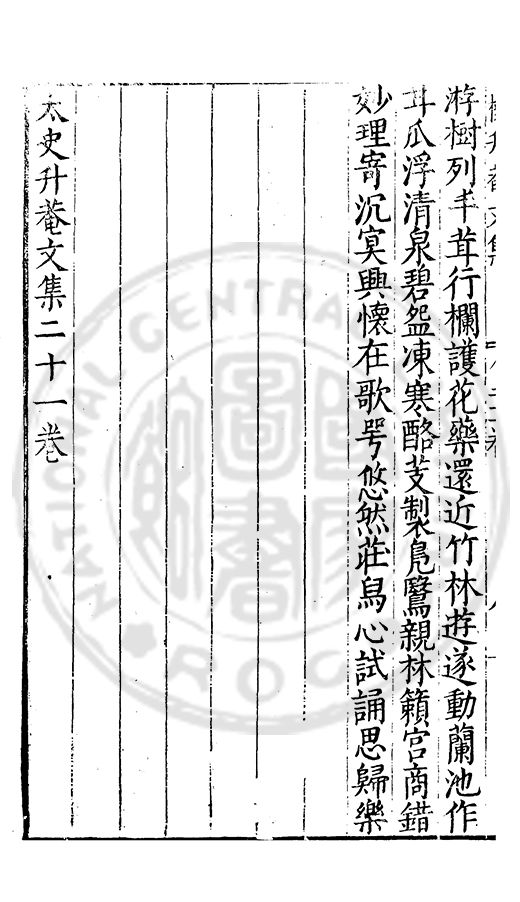 游樹列丰茸行欄護花藥還近竹林遊遂動蘭池作
耳瓜浮清泉碧盌凍寒酪芰製鳧鷖親林籟宮商錯
妙理寄沉冥興懷在歌咢悠然莊舄心試誦思歸樂
太史升菴文集二十一卷
NATIONAL CENTRAL
R.O.C.
圖書